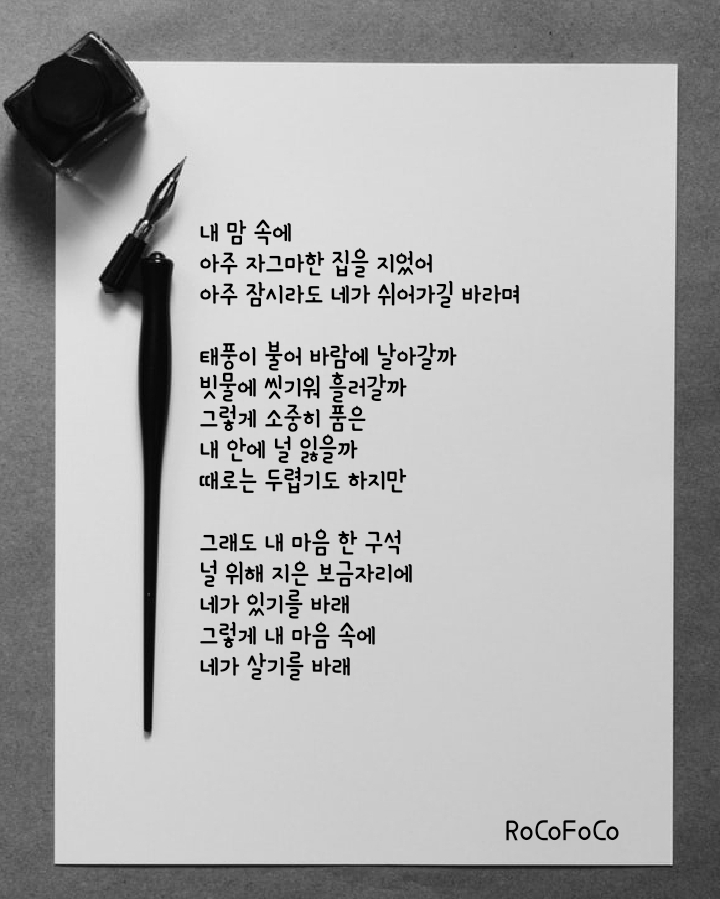 내 맘 속에
아주 자그마한 집을 지었어
아주 잠시라도 네가 쉬어가길 바라며
태풍이 불어 바람에 날아갈까
빗물에 씻기워 흘러갈까
그렇게 소중히 품은
내 안에 널 잃을까
때로는 두렵기도 하지만
그래도 내 마음 한 구석
널 위해 지은 보금자리에
네가 있기를 바래
그렇게 내 마음 속에
네가 살기를 바래
RoCoFoCo